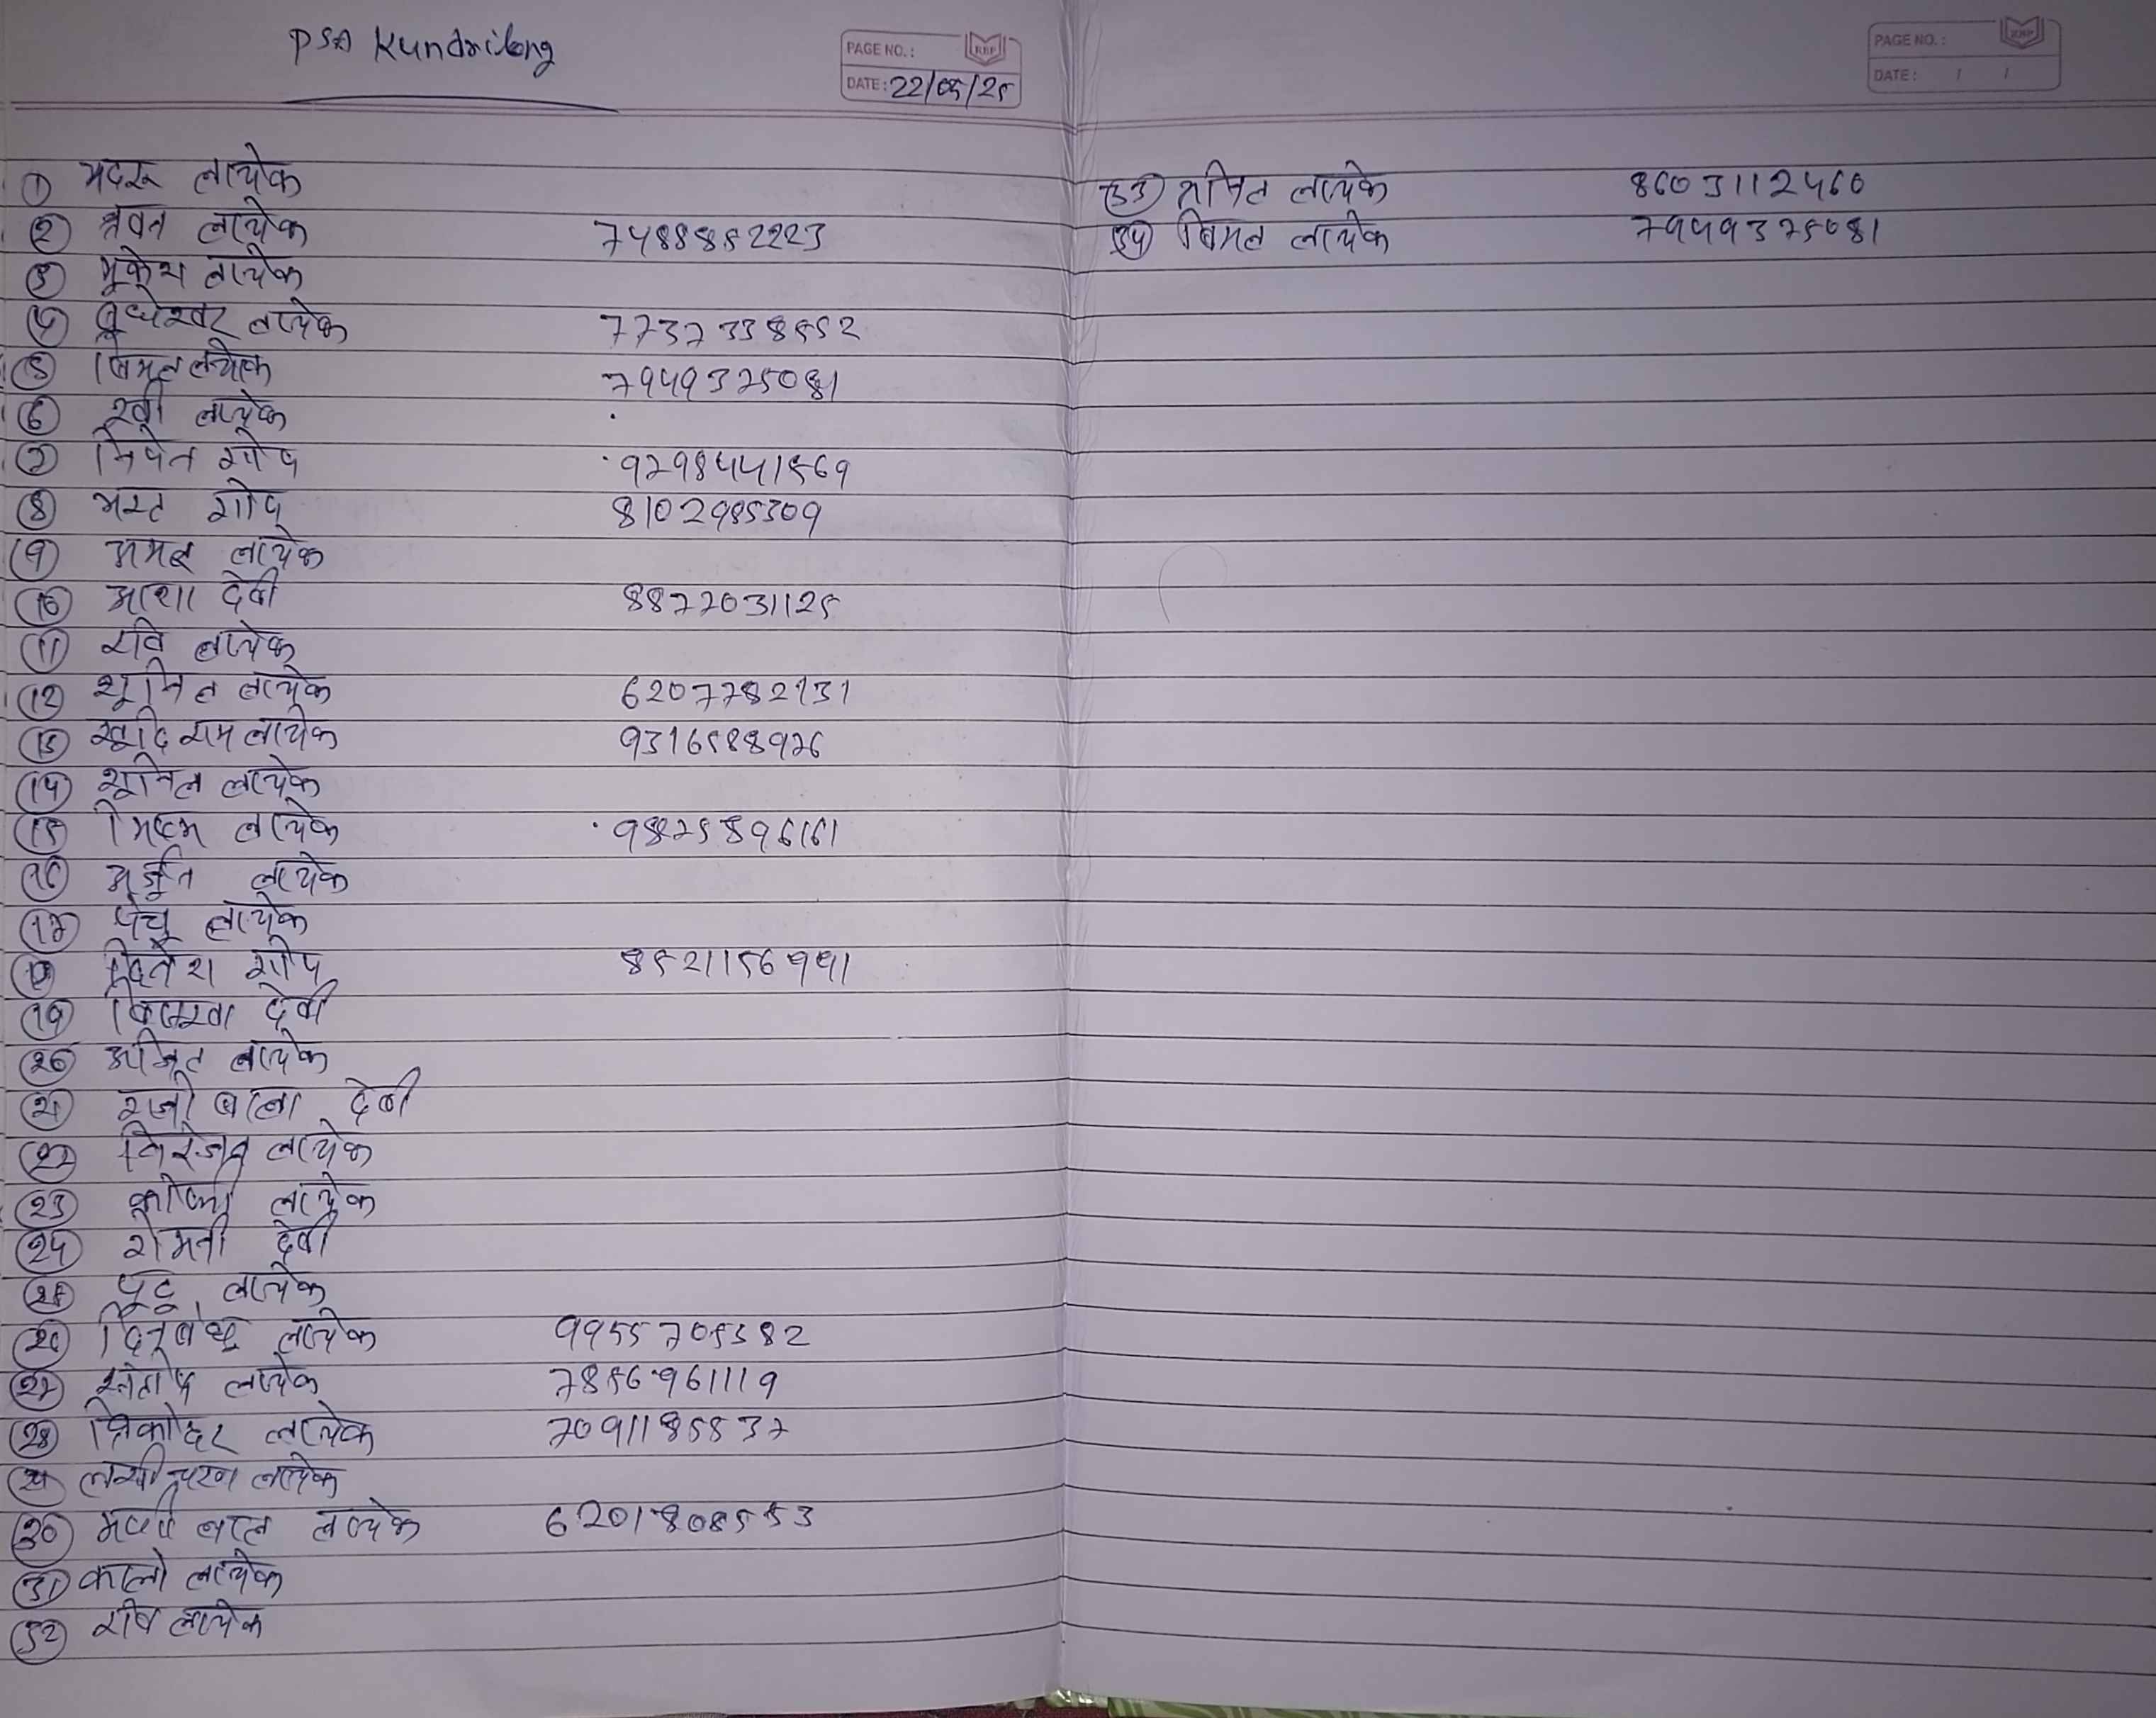 PSA Kundrilong
PAGE NO.:
DATE: 22/05/25
① भदरू लायेक
② श्रवन लायेक 7488852223
③ मुकेश लायेक
④ बुधेश्वर लायेक 7737338552
⑤ बिमल लायेक 7949375081
⑥ लायेक
⑦ गोप 9298441569
⑧ भरत गोप 8102985309
⑨ अमर लायेक
⑩ आशा देवी 8877031125
⑪ रवि लायेक
⑫ शुनिल लायेक 6207782131
⑬ खुदिराम लायेक 9316588976
⑭ शुनिल लायेक
⑮ लायेक 9875896161
⑯ अर्जुन लायेक
⑰ पंचु लायेक
⑱ दिनेश गोप 8521156991
⑲ देवी
⑳ अजित लायेक
㉑ बाला देवी
㉒ निरंजन लायेक
㉓ लायेक
㉔ देवी
㉕ पुटु लायेक
㉖ दिनबंधु लायेक 9955705382
㉗ संतोष लायेक 7856961119
㉘ लायेक 7091185837
㉙ लखीचरण लायेक
㉚ लायेक 6201808553
㉛ कालो लायेक
㉜ रवि लायेक
PAGE NO.:
DATE: / /
㉝ लायेक 8603112460
㉞ बिमल लायेक 7949375081